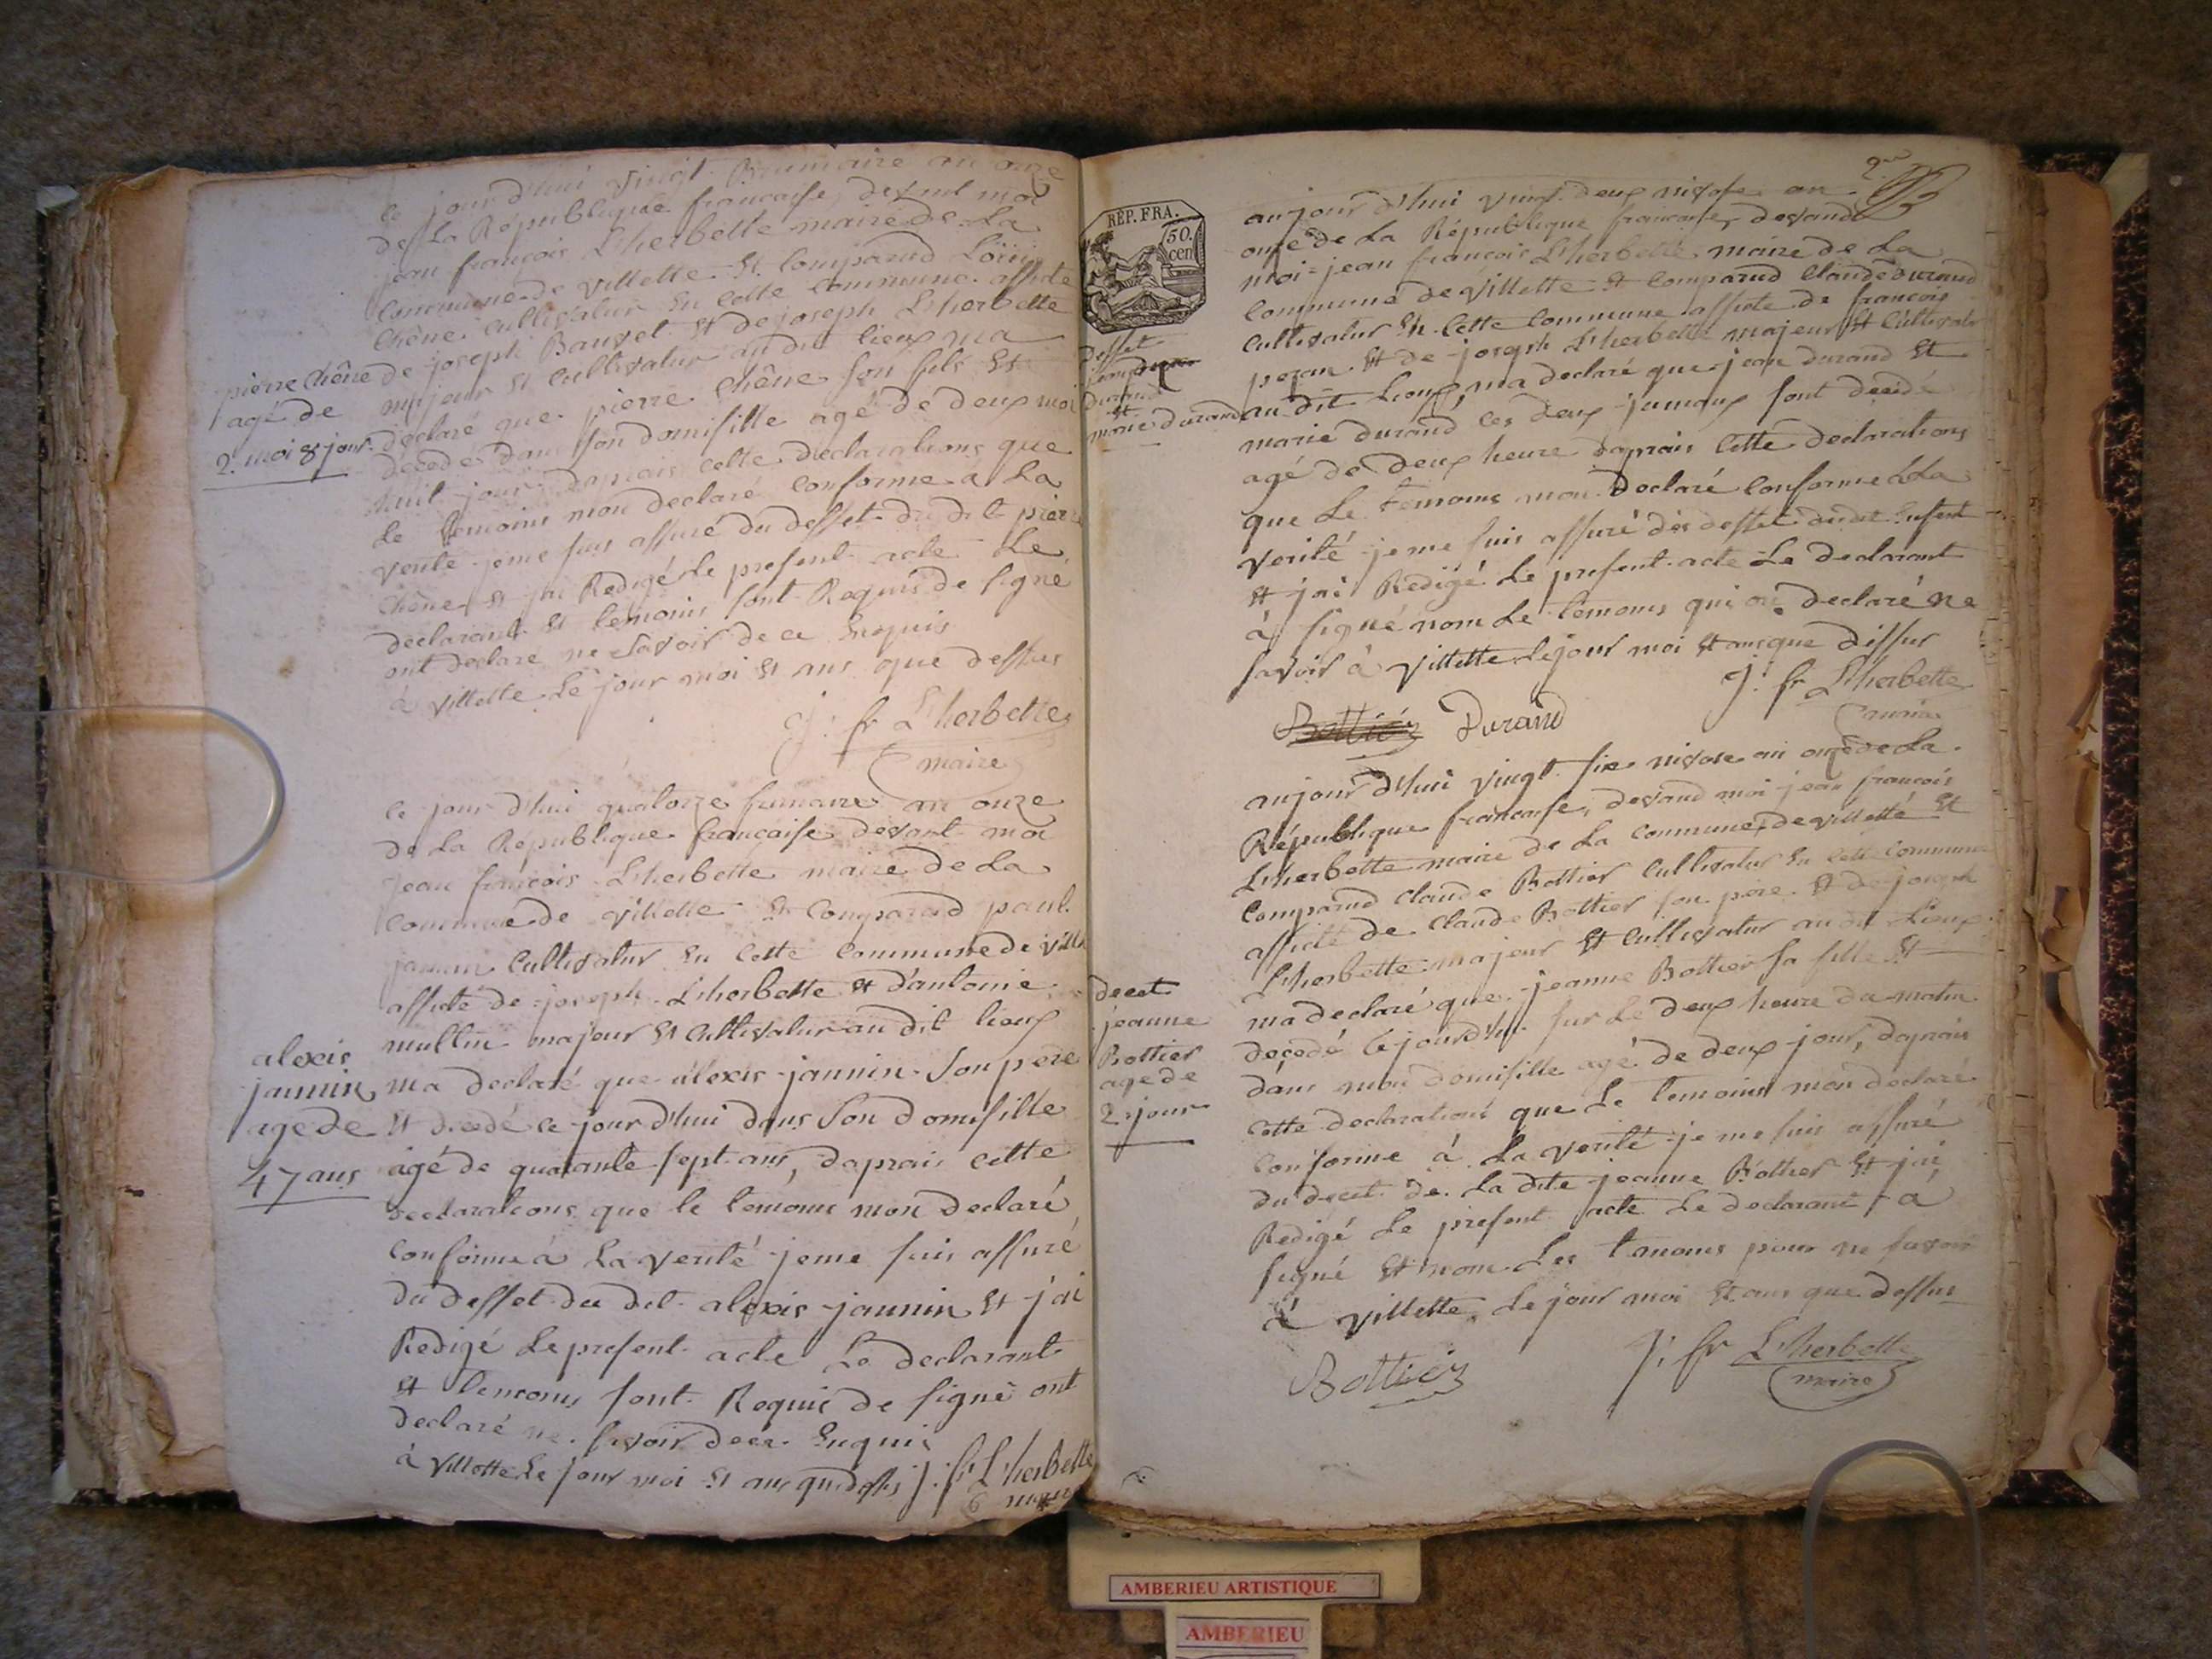 ce jour d'hui vingt Brumaire an onze
de La République francaise devent moi
jean françois L'herbette maire de La
Commune de villette Et Comparud Loüis
Chêne Cultivatur En Cette Commune assiste
de joseph Bauvet Et de joseph L'herbette
majeur Et Cultivatur au dit lieux ma
declaré que pierre Chêne son fils Et
decedé dans son domisille agé de deux moi
huit jour daprais cette declarations que
Le temoins mon declaré conforme à La
verité jeme suis assuré du desset du dit pierre
Chêne Et jai Redigé Le present acte Le
declarant Et temoins sont Requis de signé
ont declaré ne savoir de ce Enquis
à villette Le jour moi Et ans que dessus
J: fr L'herbette
maire
pierre Chêne
agé de
2. moi 8 jour
ce jour d'hui quatorze frimaire an onze
de La République francaise devant moi
jean françois L'herbette maire de La
Commune de villette Et Comparud paul
jannin Cultivatur En Cette Commune de
assisté de joseph L'herbette Et d'antoine
mullin majeur Et Cultivatur au dit lieux
ma declaré que alexis jannin Son pere
Et decedé ce jour d'hui dans Son domisille
agé de quarante sept ans, daprais cette
declarations que le temoins mon declaré
Conforme à La verité jeme suis assuré
du desset du dit alexis jannin Et j'ai
Redigé Le present acte Le declarant
Et temoins sont Requis de signé ont
declaré ne savoir de ce Enquis
à villette Le jour moi Et ans que dessus J: fr L'herbette
maire
alexis
jannin
age de
47 ans
REP. FRA.
50.
cen
aujour d'hui vingt deux nivose an
onze de La République francaise, devand
moi jean françois L'herbette maire de La
Commune de villette Et Comparud Claude durand
Cultivatur En Cette Commune assiste de françois
Et de joseph L'herbette majeur Et Cultivatur
au dit Lieux, ma declaré que jean durand Et
marie durand Ces deux jumaux sont decédé
agé de deux heure daprais Cette declarations
que Le temoins mon Declaré Conforme à La
verité je me suis assuré des desset dudit Enfent
Et j'ai Redigé Le present acte Le declarant
à signé nom Le temoins qui on declaré ne
savoir à villette Le jour moi Et ans que dissus
J: fr L'herbette
maire
Bottier Durand
desset
jean
Durand
Et
marie durand
aujour d'hui vingt six nivose an onze de La
République francaise, devand moi jean françois
L'herbette maire de La Commune de villette Et
Comparud Claude Bottier Cultivatur En Cette Commune
assisté de Claude Bottier son pere Et de joseph
L'herbette majeur Et Cultivatur au dit Lieux
ma declaré que jeanne Bottier sa fille Et
decedé Ce jourd'hui sur Le deux heure du matin
dans mon domisille agé de deux jour, daprais
Cette declarations que Le temoins mon declaré
Conforme à La verité je me suis assuré
du decet de La dite jeanne Bottier Et j'ai
Redigé Le present acte Le declarant à
signé Et nom Les temoins pour ne savoir
à villette Le jour moi Et ans que dessus
Bottier
J: fr L'herbette
maire
decet
jeanne
Bottier
age de
2 jour
AMBERIEU ARTISTIQUE
AMBERIEU